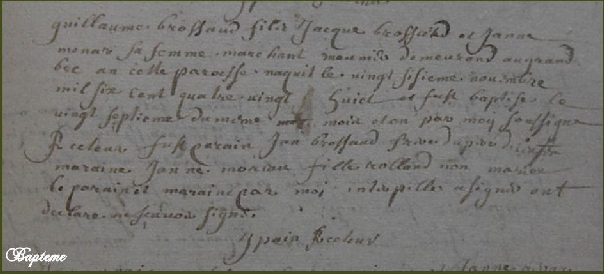 guillaume brossaud fils Jacque brossaud et Janne
monar sa femme marchant meunier demeurond au grand
bec an cette paroisse naquit le vingt sisieme nouembre
mil six cent quatre vingt huict et fust baptise le
vingt septieme du meme mois et an par moy soussigne
Recteur fust parain Jan brossaud frere du pre
maraine Janne moriau fille rolland non mariee
le parain et maraine par moi interpelle a signe ont
declare ne scauoir signe.
Recteur
Bapteme